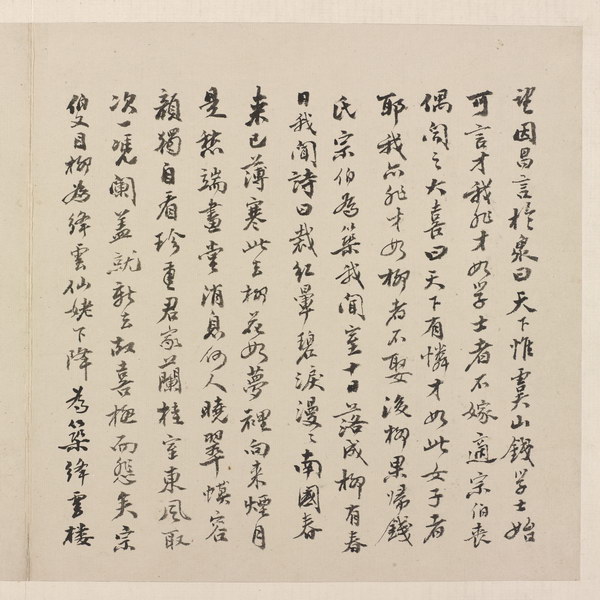 望因昌言於衆曰天下惟虞山錢学士始
可言才我非才如学士者不嫁適宗伯喪
偶聞之大喜曰天下有憐才如此女子者
耶我亦非才如柳者不娶後柳果歸錢
氏宗伯為築我聞室十日落成柳有春
日我聞詩曰裁紅暈碧淚漫々南國春
来已薄寒此去柳花如夢裡向来煙月
是愁端畫堂消息何人曉翠幙容
顏獨自看珍重君家蘭桂室東風取
次一凭闌蓋就新去故喜極而矣宗
伯又目柳為絳雲仙姥下降 為築絳雲樓